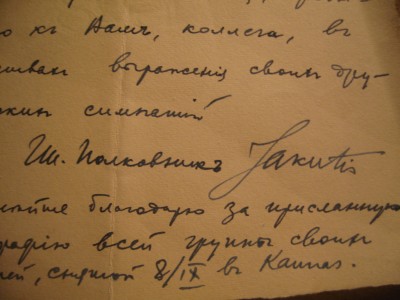 о къ Вамъ, коллега, въ
выраженія своихъ дру-
симпатій
Шт. Полковникъ Jakutis
благодарю за присланную
графію всей группы своихъ
снятой 8/IX въ Каунас.